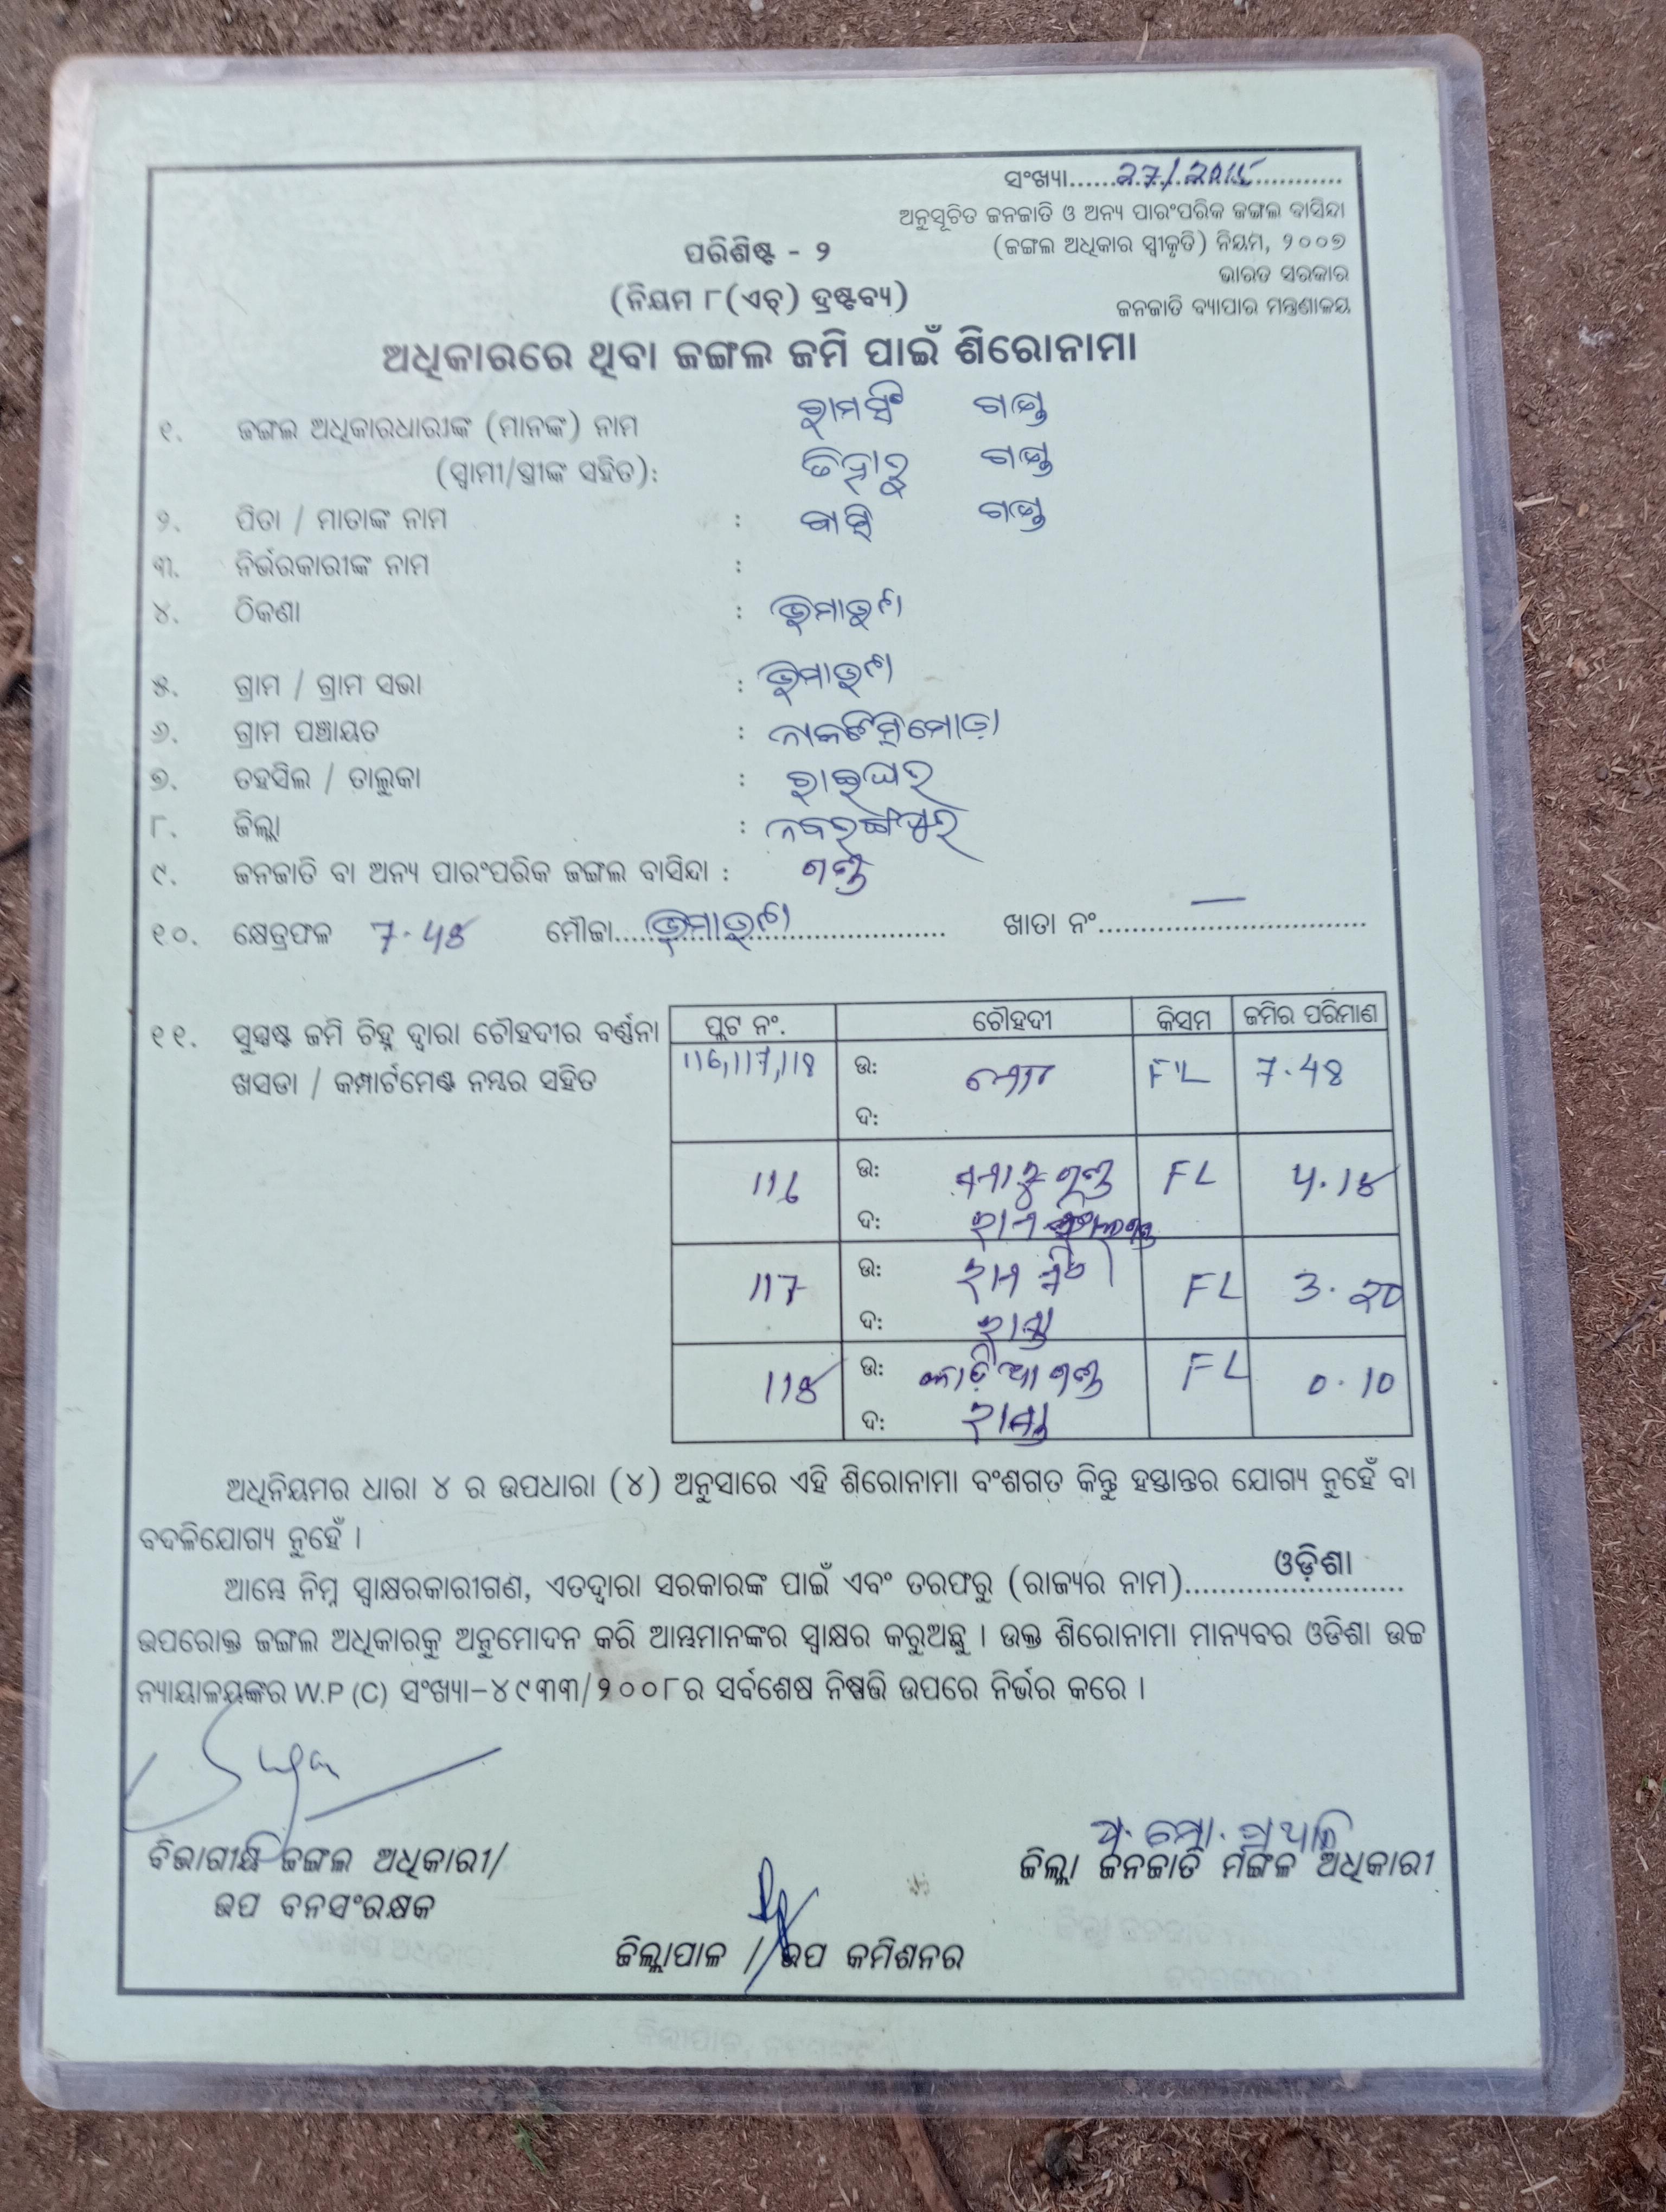 ସଂଖ୍ୟା......27/2015......
ଅନୁସୂଚିତ ଜନଜାତି ଓ ଅନ୍ୟ ପାରଂପରିକ ଜଙ୍ଗଲ ବାସିନ୍ଦା
(ଜଙ୍ଗଲ ଅଧିକାର ସ୍ୱୀକୃତି) ନିୟମ, ୨୦୦୭
ଭାରତ ସରକାର
ଜନଜାତି ବ୍ୟାପାର ମନ୍ତ୍ରଣାଳୟ
ପରିଶିଷ୍ଟ - ୨
(ନିୟମ ୮(ଏଚ୍) ଦ୍ରଷ୍ଟବ୍ୟ)
ଅଧିକାରରେ ଥିବା ଜଙ୍ଗଲ ଜମି ପାଇଁ ଶିରୋନାମା
୧. ଜଙ୍ଗଲ ଅଧିକାରଧାରୀଙ୍କ (ମାନଙ୍କ) ନାମ ରାମସିଂ ଗଣ୍ଡ
(ସ୍ୱାମୀ/ସ୍ତ୍ରୀଙ୍କ ସହିତ): ତିହାରୁ ଗଣ୍ଡ
୨. ପିତା / ମାତାଙ୍କ ନାମ : ଗଣ୍ଡ
୩. ନିର୍ଭରକାରୀଙ୍କ ନାମ :
୪. ଠିକଣା :
୫. ଗ୍ରାମ / ଗ୍ରାମ ସଭା :
୬. ଗ୍ରାମ ପଞ୍ଚାୟତ :
୭. ତହସିଲ / ତାଲୁକା : ରାଇଘର
୮. ଜିଲ୍ଲା : ନବରଙ୍ଗପୁର
୯. ଜନଜାତି ବା ଅନ୍ୟ ପାରଂପରିକ ଜଙ୍ଗଲ ବାସିନ୍ଦା : ଗଣ୍ଡ
୧୦. କ୍ଷେତ୍ରଫଳ 7.48 ମୌଜା...... ଖାତା ନଂ...... —
୧୧. ସୁସ୍ପଷ୍ଟ ଜମି ଚିହ୍ନ ଦ୍ୱାରା ଚୌହଦୀର ବର୍ଣ୍ଣନା
ଖସଡା / କମ୍ପାର୍ଟମେଣ୍ଟ ନମ୍ବର ସହିତ
ପ୍ଲଟ ନଂ. ଚୌହଦୀ କିସମ ଜମିର ପରିମାଣ
116,117,118 ଉ: FL 7.48
ଦ:
116 ଉ: ଗଣ୍ଡ FL 4.18
ଦ:
117 ଉ: ରାମ ସିଂ FL 3.20
ଦ: ରାସ୍ତା
118 ଉ: ଗଣ୍ଡ FL 0.10
ଦ: ରାସ୍ତା
ଅଧିନିୟମର ଧାରା ୪ ର ଉପଧାରା (୪) ଅନୁସାରେ ଏହି ଶିରୋନାମା ବଂଶଗତ କିନ୍ତୁ ହସ୍ତାନ୍ତର ଯୋଗ୍ୟ ନୁହେଁ ବା
ବଦଳିଯୋଗ୍ୟ ନୁହେଁ ।
ଆମ୍ଭେ ନିମ୍ନ ସ୍ୱାକ୍ଷରକାରୀଗଣ, ଏତଦ୍ୱାରା ସରକାରଙ୍କ ପାଇଁ ଏବଂ ତରଫରୁ (ରାଜ୍ୟର ନାମ)......ଓଡ଼ିଶା......
ଉପରୋକ୍ତ ଜଙ୍ଗଲ ଅଧିକାରକୁ ଅନୁମୋଦନ କରି ଆମ୍ଭମାନଙ୍କର ସ୍ୱାକ୍ଷର କରୁଅଛୁ । ଉକ୍ତ ଶିରୋନାମା ମାନ୍ୟବର ଓଡିଶା ଉଚ୍ଚ
ନ୍ୟାୟାଳୟଙ୍କର W.P (C) ସଂଖ୍ୟା-୪୯୩୩/୨୦୦୮ର ସର୍ବଶେଷ ନିଷ୍ପତ୍ତି ଉପରେ ନିର୍ଭର କରେ ।
ବିଭାଗୀୟ ଜଙ୍ଗଲ ଅଧିକାରୀ/
ଉପ ବନସଂରକ୍ଷକ
ଜିଲ୍ଲା ଜନଜାତି ମଙ୍ଗଳ ଅଧିକାରୀ
ଜିଲ୍ଲାପାଳ / ଉପ କମିଶନର